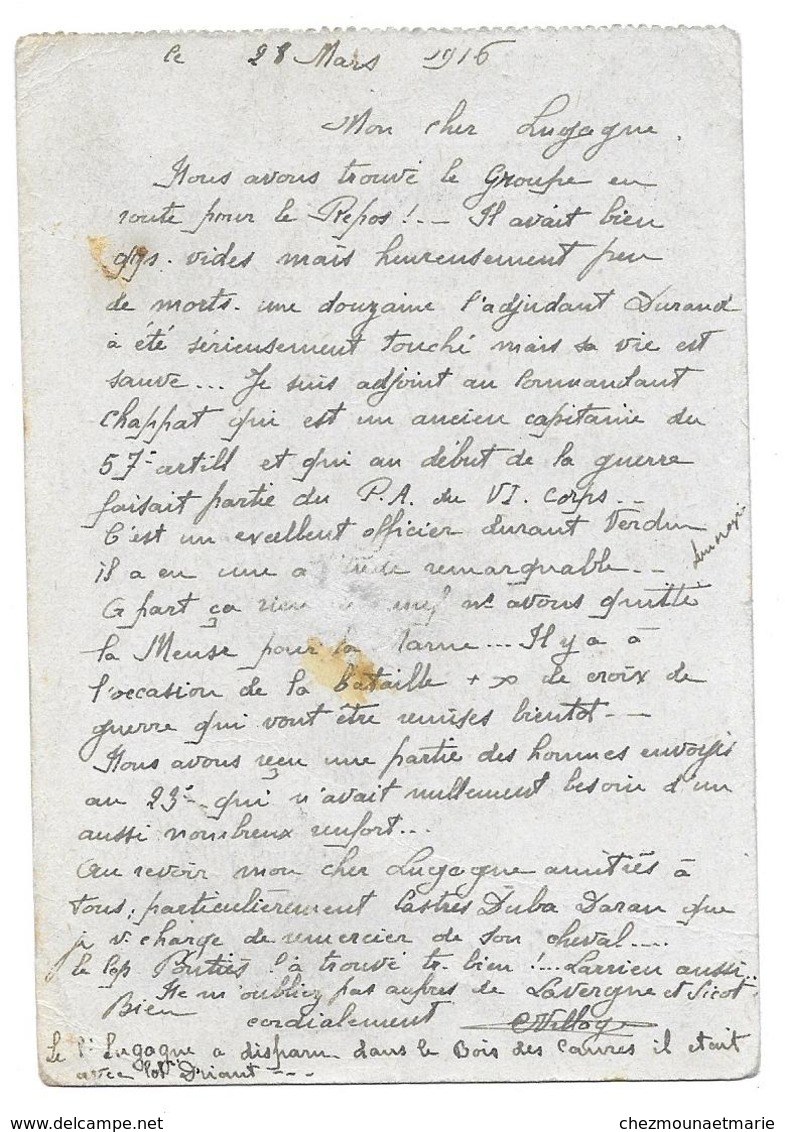 le 28 Mars 1916
Mon cher Lugagne,
Nous avons trouvé le Groupe en
route pour le Repos ! -- Il avait bien
qqs. vides mais heureusement peu
de morts. une douzaine l'adjudant Durand
à été sérieusement touché mais sa vie est
sauve... Je suis adjoint au Commandant
Chappat qui est un ancien capitaine du
57e artill et qui au début de la guerre
faisait partie du P.A. du VI. Corps --
C'est un excellent officier durant Verdun
il a eu une remarquable --
A part ça rien ns avons quitté
la Meuse pour la Marne... Il y a à
l'occasion de la bataille + de croix de
guerre qui vont être remises bientot --
Nous avons reçu une partie des hommes envoyés
au 23e - qui n'avait nullement besoin d'un
aussi nombreux renfort...
Au revoir mon cher Lugagne amitiés à
tous, particulièrement Castres Duba Daran que
je v. charge de remercier de son cheval....
le Cap Pouties l'à trouvé tr. bien !... Larrieu aussi..
Ne m'oubliez pas auprès de Lavergne et Sicot.
Bien cordialement
Le Lugagne a disparu dans le Bois des Caures il etait
avec Driant ---
chezmounaetmarie.com